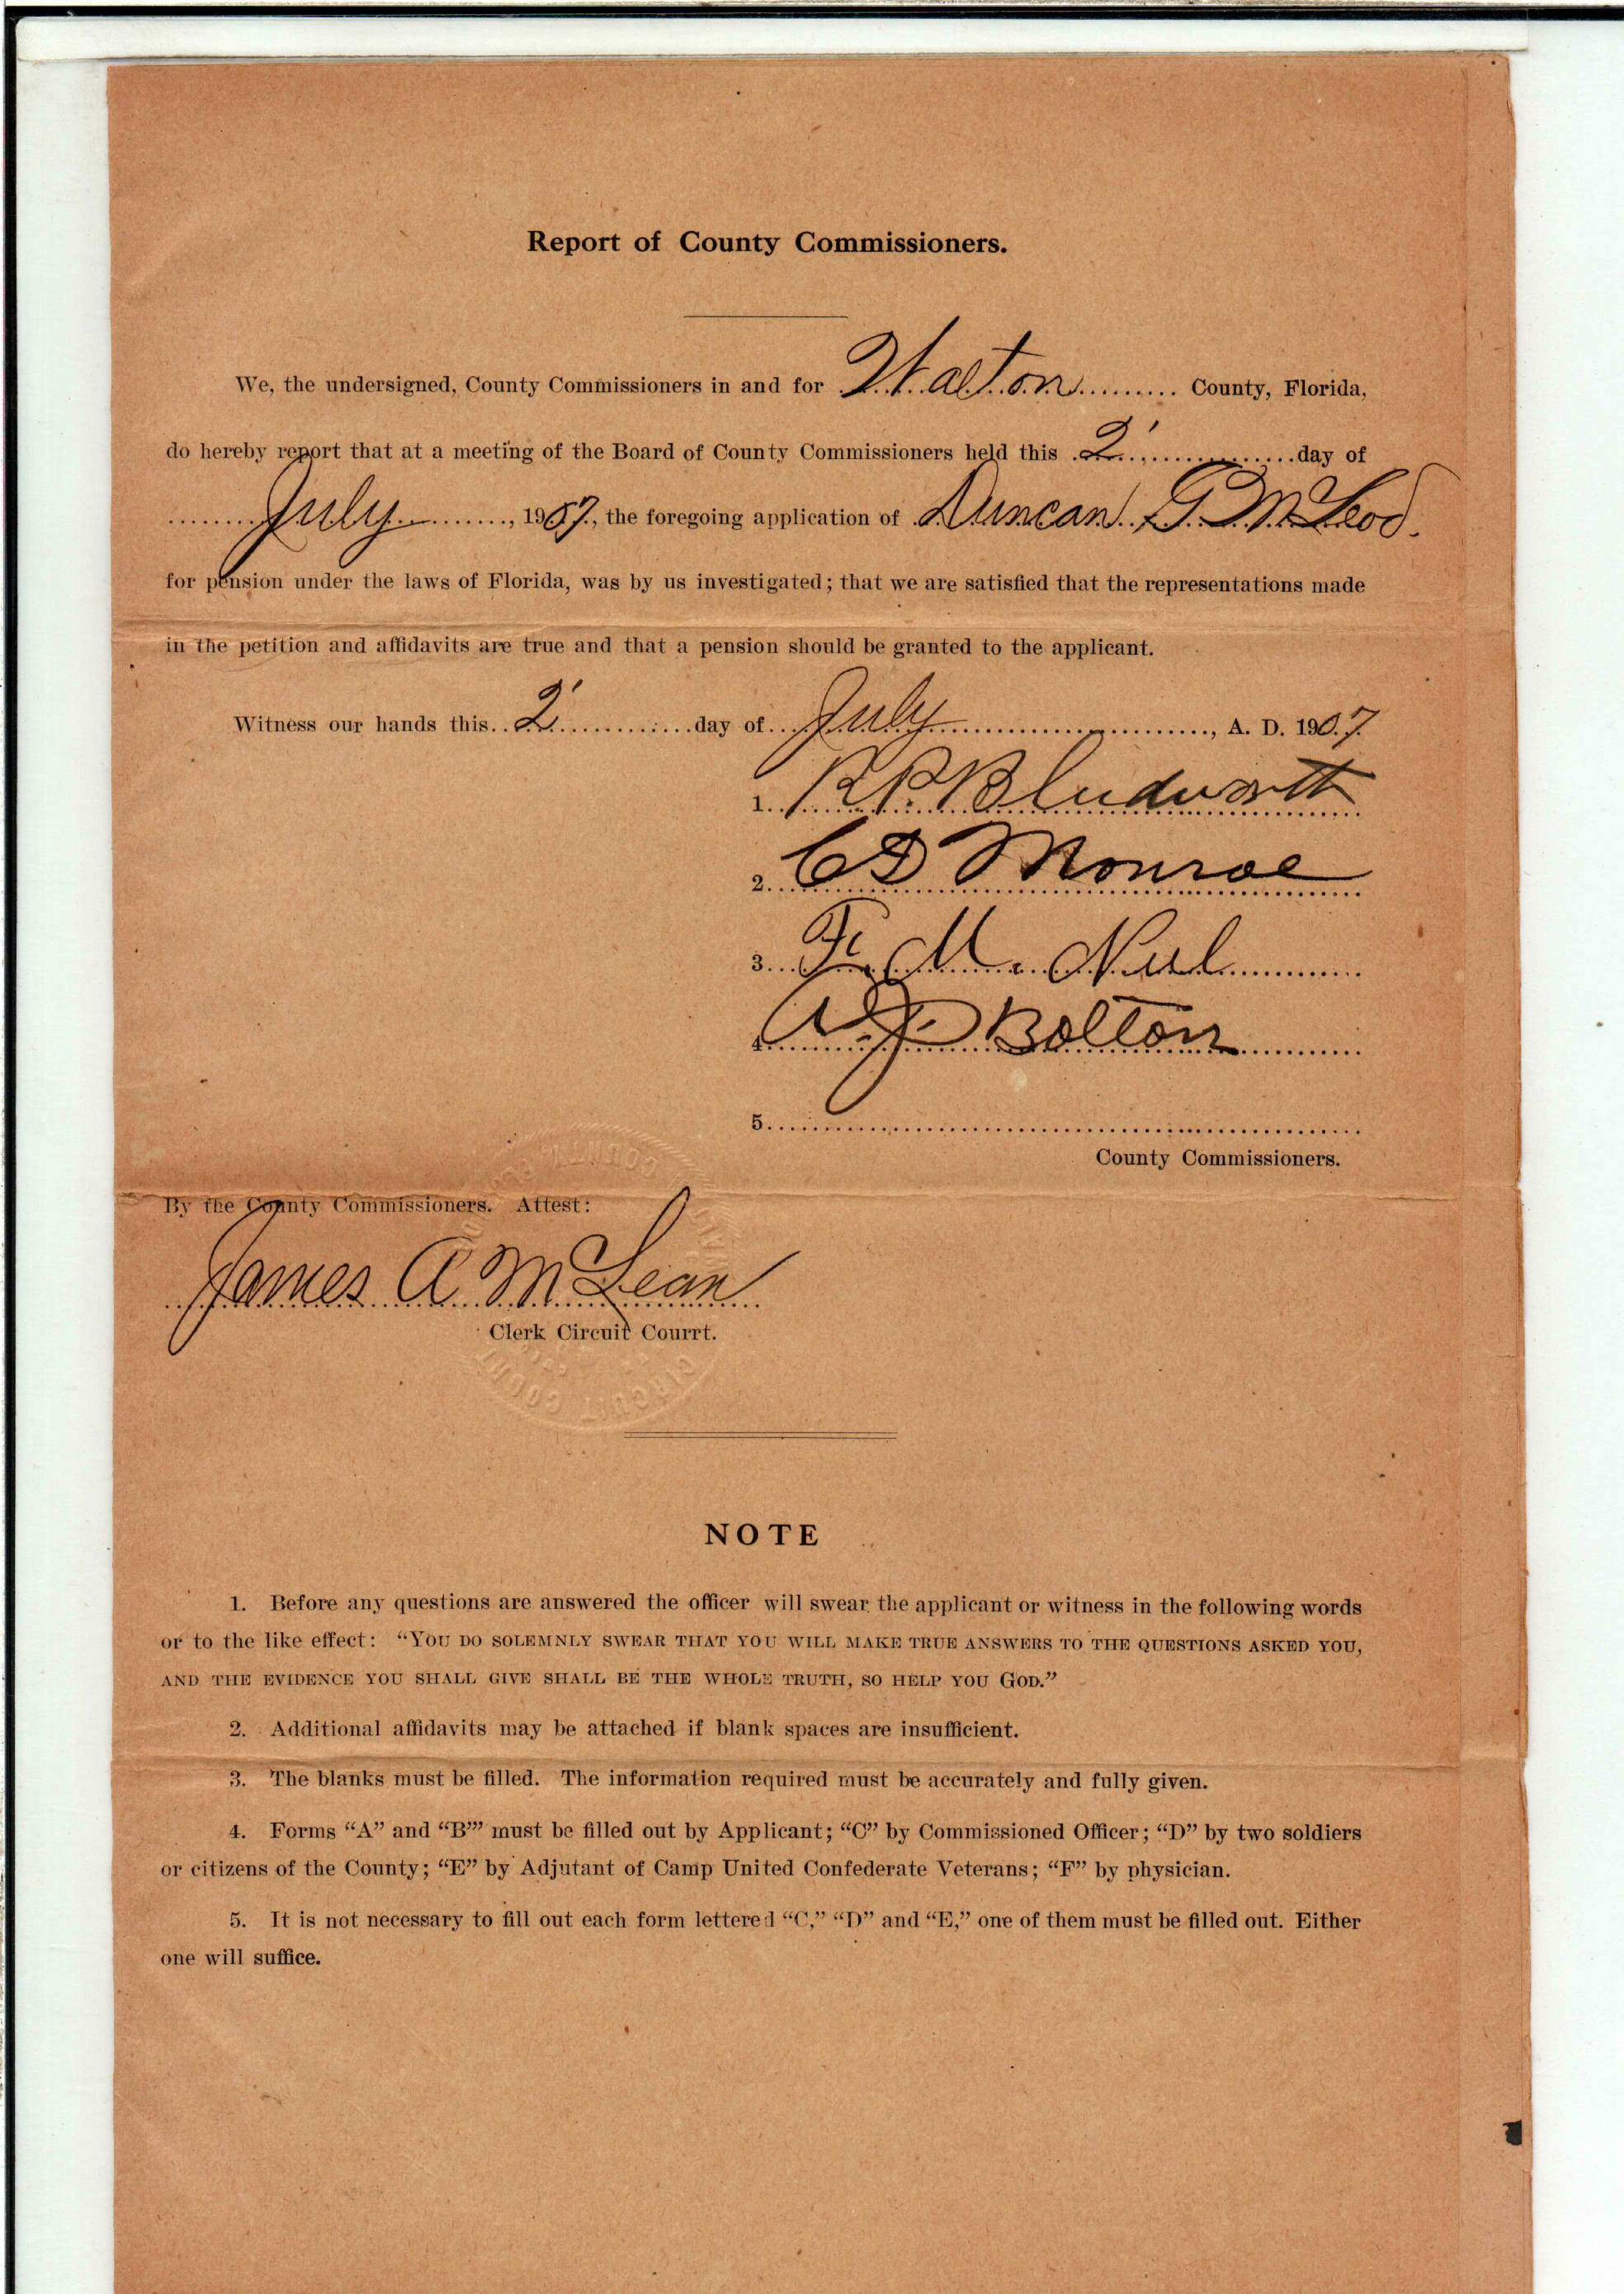 Report of County Commissioners.
We, the undersigned, County Commissioners in and for Walton County, Florida,
do hereby report that at a meeting of the Board of County Commissioners held this 2' day of
July, 1907, the foregoing application of Duncan G. McLeod.
for pension under the laws of Florida, was by us investigated; that we are satisfied that the representations made
in the petition and affidavits are true and that a pension should be granted to the applicant.
Witness our hands this 2' day of July, A. D. 1907.
1. R P Bludworth
2. C D Monroe
3. F. M. Neel
4. A J Bolton
5.
County Commissioners.
By the County Commissioners. Attest:
James A McLean
Clerk Circuit Courrt.
COUNTY
CIRCUIT COURT
NOTE
1. Before any questions are answered the officer will swear the applicant or witness in the following words
or to the like effect: “YOU DO SOLEMNLY SWEAR THAT YOU WILL MAKE TRUE ANSWERS TO THE QUESTIONS ASKED YOU,
AND THE EVIDENCE YOU SHALL GIVE SHALL BE THE WHOLE TRUTH, SO HELP YOU GOD.”
2. Additional affidavits may be attached if blank spaces are insufficient.
3. The blanks must be filled. The information required must be accurately and fully given.
4. Forms “A” and “B”’ must be filled out by Applicant; “C” by Commissioned Officer; “D” by two soldiers
or citizens of the County; “E” by Adjutant of Camp United Confederate Veterans; “F” by physician.
5. It is not necessary to fill out each form lettered “C,” “D” and “E,” one of them must be filled out. Either
one will suffice.